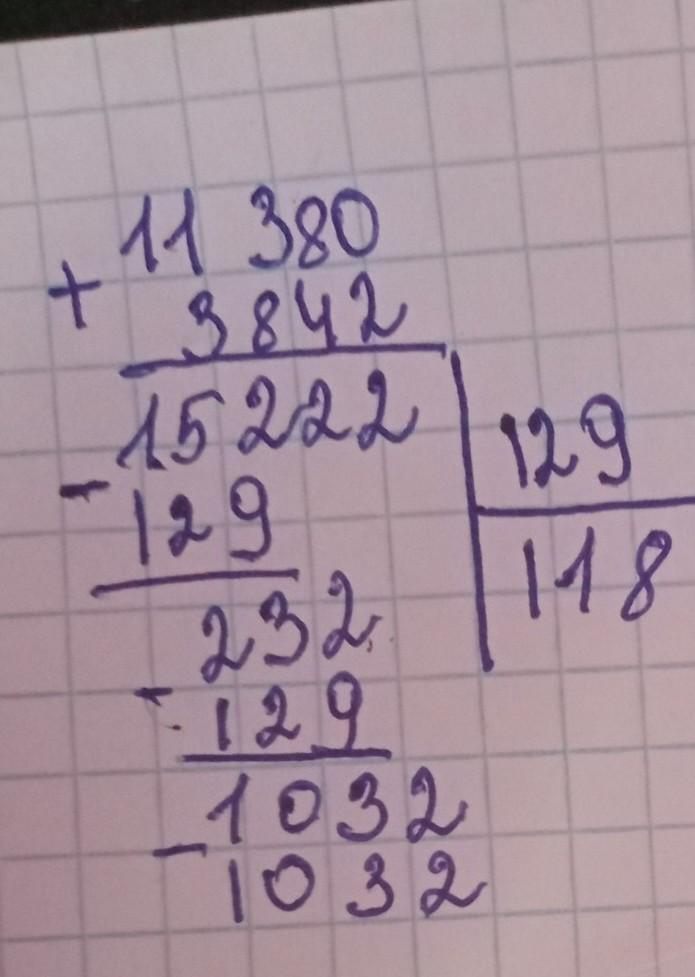 11 380
+ 3842
15222 129
- 129 118
232
- 129
1032
- 1032